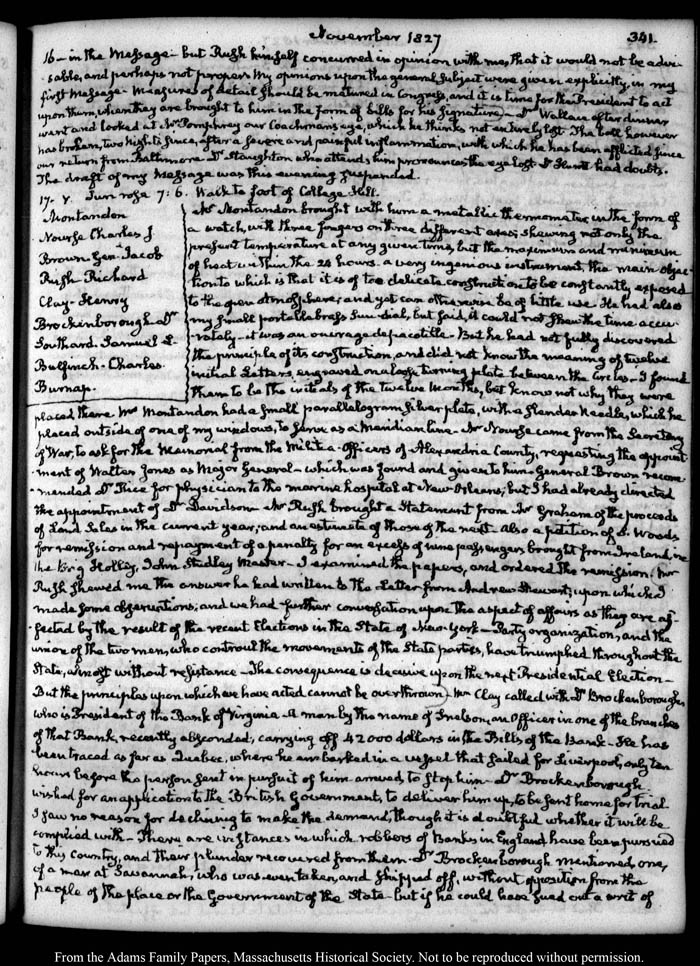 November 1827
341.
16 — in the Message — but Rush himself concurred in opinion with me, that it would not be advi-
sable, and perhaps not proper. My opinions upon the general subject were given explicitly, in my
first Message. Measures of detail should be matured in Congress, and it is time for the President to act
upon them, when they are brought to him in the form of bills for his signature. Dr Wallace after dinner
went and looked at Mr Pomphrey our Coachman's eye, which he thinks not entirely lost. The ball however
has broken, two nights since, after a severe and painful inflammation, with which he has been afflicted since
our return from Baltimore. Dr Staughton who attends him pronounces the eye lost Dr Hunt had doubts.
The draft of my Message was this evening suspended.
17. Sun rose 7:6. Walk to foot of College Hill.
Montandon
Nourse Charles J
Brown Genl Jacob
Rush Richard
Clay. Henry
Brockenborough Dr
Southard. Samuel L.
Bulfinch. Charles
Burnap.
Mr Montandon brought with him a metallic thermometer, in the form of
a watch, with three fingers on three different axes; shewing not only the
present temperature at any given time, but the maximum and minimum
of heat within the 24 hours. a very ingenious instrument, the main objec-
tion to which is that it is of too delicate construction to be constantly exposed
to the open atmosphere, and yet can otherwise be of little use. He had also
my small portable brass Sun-dial, but said, it could not shew the time accu-
rately. it was an ouvrage de pacotille. But he had not fully discovered
the principle of its construction, and did not know the meaning of twelve
initial Letters, engraved on a loose turning plate between the circles. I found
them to be the initials of the twelve Months, but know not why they were
placed there. Mr Montandon had a small parallelogram silver plate, with a slender needle, which he
placed outside of one of my windows, to serve as a Meridian line. Mr Nourse came from the Secretary
of War, to ask for the Memorial from the Militia Officers of Alexandria County, requesting the appoint-
ment of Walter Jones as Major General — which was found and given to him. General Brown recom-
mended Dr Rice for physician to the marine hospital at New-Orleans; but I had already directed
the appointment of Dr Davidson. Mr Rush brought a Statement from Mr Graham of the proceeds
of Land Sales in the current year; and an estimate of those of the next. Also a petition of S. Woods
for remission and repayment of a penalty for an excess of nine passengers brought from Ireland, in
the brig Holley, John Studley Master — I examined the papers, and ordered the remission. Mr
Rush shewed me the answer he had written to the Letter from Andrew Stewart; upon which I
made some observations; and we had further conversation upon the aspect of affairs as they are af-
fected by the result of the recent Elections in the State of New-York — Party organization, and the
union of the two men, who controul the movements of the State parties, have triumphed throughout the
State, almost without resistance — The consequence is decisive upon the next Presidential Election —
But the principles upon which we have acted cannot be overthrown. Mr Clay called with Dr Brockenborough
who is President of the Bank of Virginia. A man by the name of Snelson, an Officer in one of the branches
of that Bank, recently absconded, carrying off 42000 dollars in the Bills of the Bank — He has
been traced as far as Quebec, where he embarked in a vessel that sailed for Liverpool, only ten
hours before the person sent in pursuit of him arrived, to stop him — Dr Brockenborough
wished for an application to the British Government, to deliver him up, to be sent home for trial.
I saw no reason for declining to make the demand, though it is doubtful whether it will be
complied with — There are instances in which robbers of Banks in England have been pursued
to this Country, and their plunder recovered from them. Dr Brockenborough mentioned, one,
of a man at Savannah, who was even taken, and shipped off, without opposition from the
people of the place or the Government of the State — but if he could have sued out a writ of
From the Adams Family Papers, Massachusetts Historical Society. Not to be reproduced without permission.